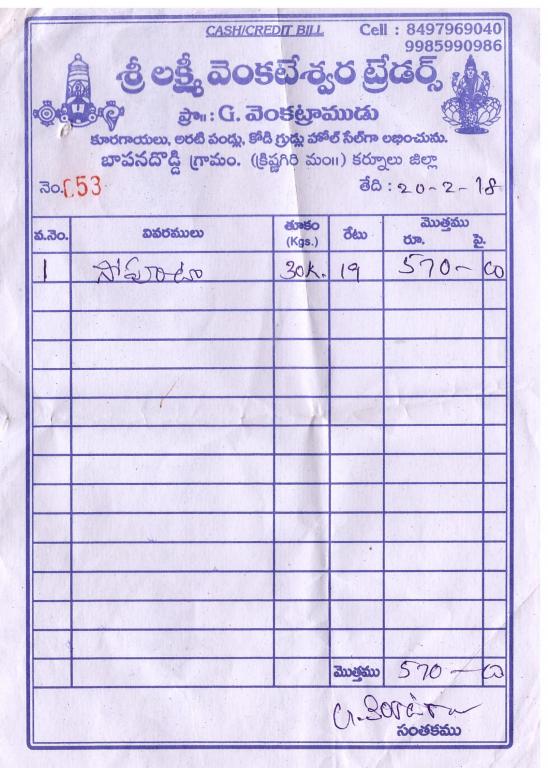 CASH/CREDIT BILL Cell : 8497969040
9985990986
శ్రీ లక్ష్మీ వెంకటేశ్వర ట్రేడర్స్
ప్రొ॥ : G. వెంకట్రాముడు
కూరగాయలు, అరటి పండ్లు, కోడి గ్రుడ్లు హోల్ సేల్‌గా లభించును.
బాపనదొడ్డి గ్రామం. (క్రిష్ణగిరి మం॥) కర్నూలు జిల్లా
నెం. 53 తేది : 20-2-18
వ.నెం. వివరములు తూకం (Kgs.) రేటు మొత్తము రూ. పై.
1 30K. 19 570- 00
మొత్తము 570-00
సంతకము